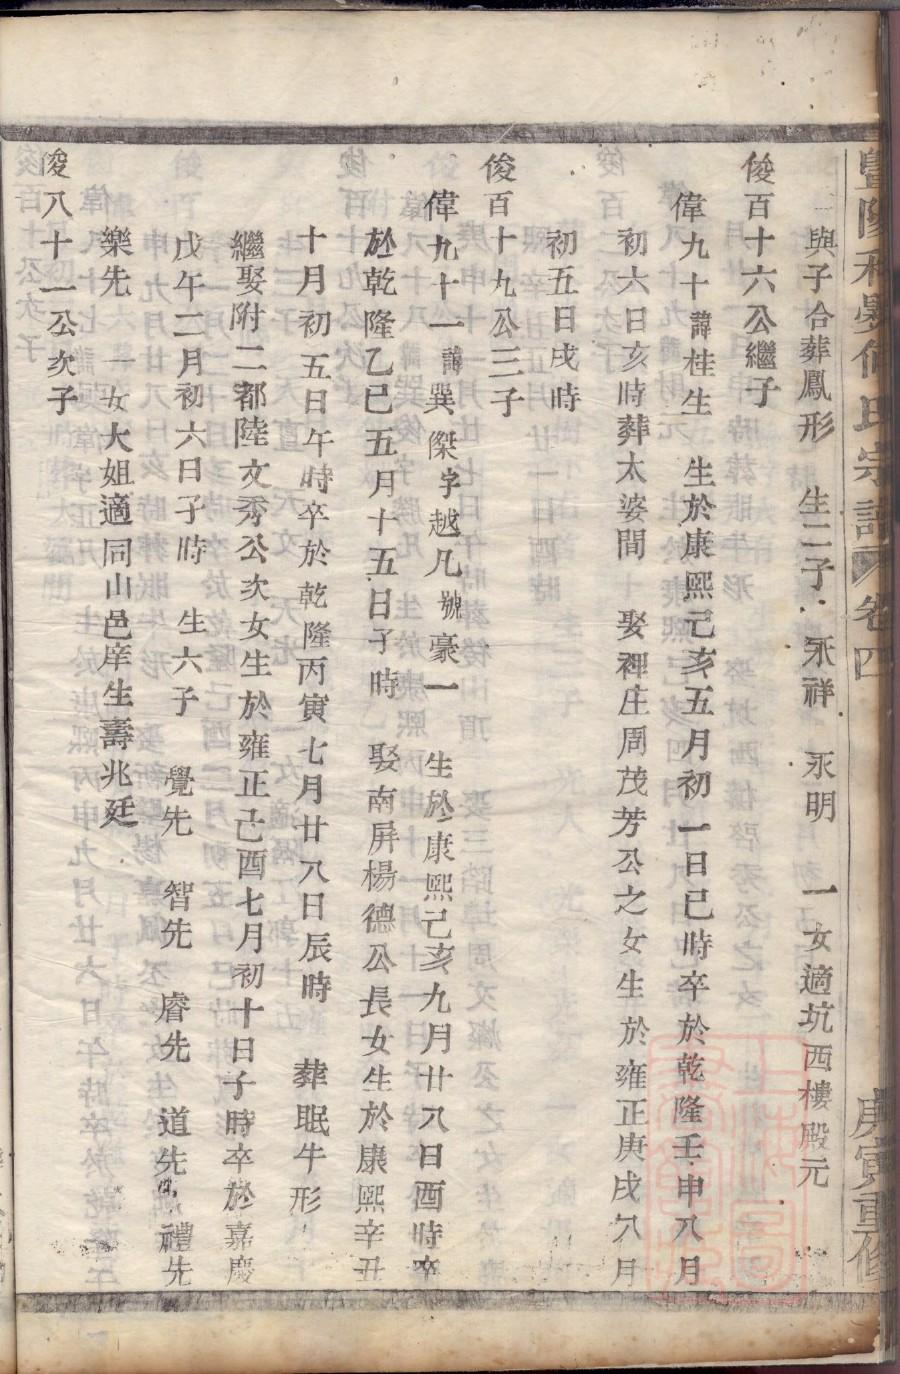 暨陽 何氏宗譜 卷四 庚寅重修
與子合葬鳳形 生二子 永祥 永明 一女適坑西樓殿元
俊百十六公繼子
偉九十諱桂生 生於康熙己亥五月初一日巳時卒於乾隆壬申八月
初六日亥時葬太婆間 娶裡庄周茂芳公之女生於雍正庚戌八月
初五日戌時
俊百十九公三子
偉九十一諱巽傑字越凡號豪一 生於康熙己亥九月廿八日酉時卒
於乾隆乙巳五月十五日子時 娶南屏楊德公長女生於康熙辛丑
十月初五日午時卒於乾隆丙寅七月廿八日辰時 葬眠牛形
繼娶附二都陸文秀公次女生於雍正己酉七月初十日子時卒於嘉慶
戊午二月初六日子時 生六子 覺先 智先 睿先 道先 禮先
樂先 一女大姐適同山邑庠生壽兆廷
俊八十一公次子